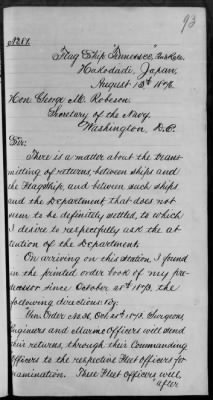 93
No. 81.
Flag Ship "Tennessee,"
Hakodadi, Japan,
August 13th 1876.
Hon George M. Robeson,
Secretary of the Navy.
Washington, D.C.
Sir:
There is a matter about the trans-
mitting of returns, between ships and
the Flagship, and between such ships
and the Department that does not
seem to be definitely settled, to which
I desire to respectfully ask the at-
tention of the Department.
On arriving on this station I found
in the printed order book of my pre-
decessor since October 28th 1873, the
following directions: viz.
Gen. Order No. 26, Oct. 28th 1873. Surgeons,
Engineers and Marine Officers will send
their returns, through their Commanding
Officers to the respective Fleet Officers for
examination. These Fleet Officers will,
after